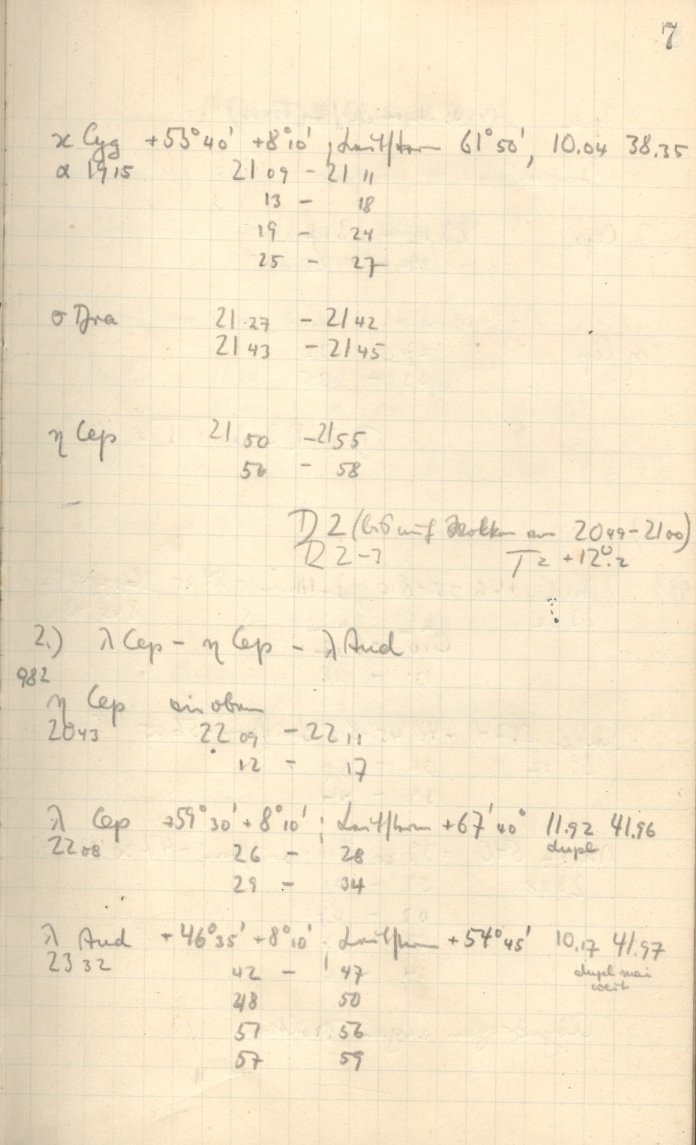 7
κ Cyg +53°40' +8°10' ; Leitstern 61°50', 10.04 38.35
α 1915 21 09 - 21 11
13 - 18
19 - 24
25 - 27
σ Dra 21 27 - 21 42
21 43 - 21 45
η Cep 21 50 - 21 55
56 - 58
D 2 (bis auf Wolken von 20 49 - 21 00)
R 2-3 T = +12°.2
2.) λ Cep - η Cep - λ And
982
η Cep wie oben
2043 22 09 - 22 11
12 - 17
λ Cep +59°30' +8°10' ; Leitstern +67'40° 11.92 41.96
2208 26 - 28 dupl
29 - 34
λ And +46°35' +8°10' ; Leitstern +54°45' 10.17 41.97
23 32 42 - 47 dupl
48 50 weit
51 56
57 59